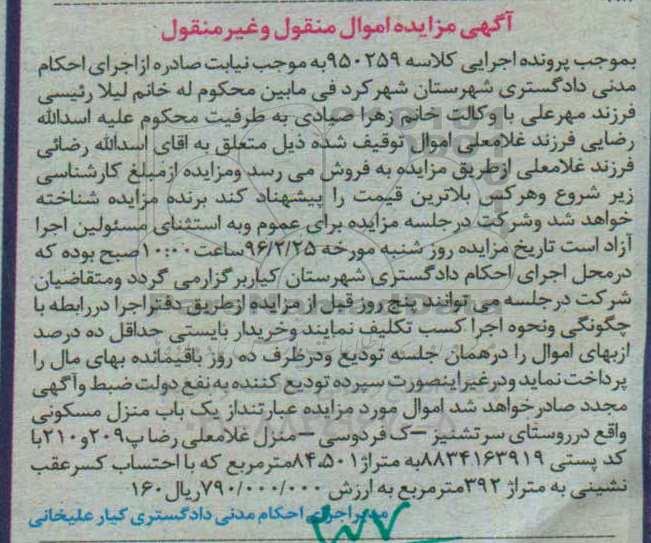 آگهی مزایده اموال منقول وغیرمنقول
بموجب پرونده اجرایی کلاسه ۹۵۰۲۵۹به موجب نیابت صادره ازاجرای احکام
مدنی دادگستری شهرستان شهرکرد فی مابین محکوم له خانم لیلا رئیسی
فرزند مهرعلی با وکالت خانم زهرا صیادی به طرفیت محکوم علیه اسدالله
رضایی فرزند غلامعلی اموال توقیف شده ذیل متعلق به اقای اسدالله رضائی
فرزند غلامعلی ازطریق مزایده به فروش می رسد ومزایده ازمبلغ کارشناسی
زیر شروع وهرکس بلاترین قیمت را پیشهناد کند برنده مزایده شناخته
خواهد شد وشرکت درجلسه مزایده برای عموم وبه استثنای مسئولین اجرا
آزاد است تاریخ مزایده روز شنبه مورخه ۹۶/۲/۲۵ساعت۱۰:۰۰صبح بوده که
درمحل اجرای احکام دادگستری شهرستان کیاربرگزارمی گردد ومتقاضیان
شرکت درجلسه می توانند پنج روز قبل از مزایده ازطریق دفتراجرا دررابطه با
چگونگی ونحوه اجرا کسب تکلیف نمایند وخریدار بایستی حداقل ده درصد
ازبهای اموال را درهمان جلسه تودیع ودرظرف ده روز باقیمانده بهای مال را
پرداخت نماید ودرغیراینصورت سپرده تودیع کننده به نفع دولت ضبط وآگهی
مجدد صادرخواهد شد اموال مورد مزایده عبارتنداز یک باب منزل مسکونی
واقع درروستای سرتشنیز –ک فردوسی –منزل غلامعلی رضا پ۲۰۹و۲۱۰با
کد پستی ۸۸۳۴۱۶۳۹۱۹به متراژ۸۴.۵۰۱مترمربع که با احتساب کسرعقب
نشینی به متراژ ۳۹۲مترمربع به ارزش ۷۹۰/۰۰۰/۰۰۰ریال ۱۶۰
مدیراجرای احکام مدنی دادگستری کیار علیخانی